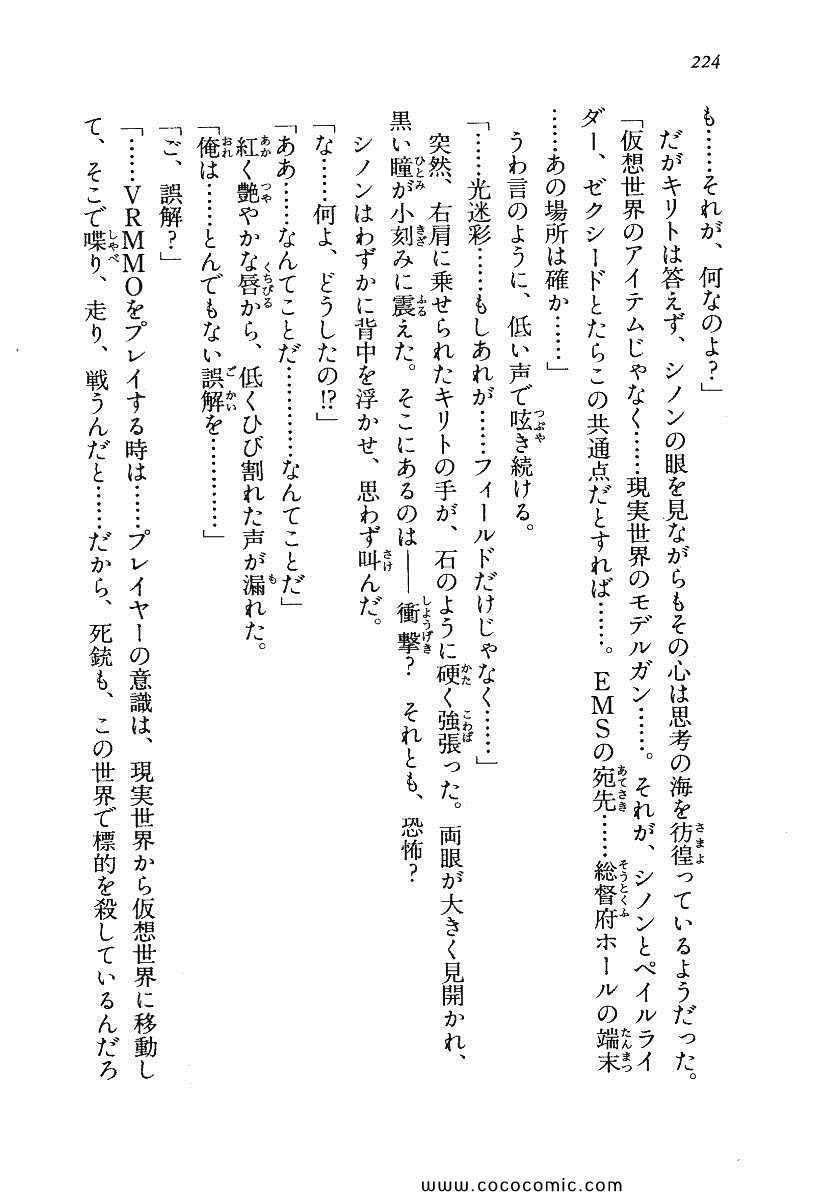 224
も……それが、何なのよ？」
だがキリトは答えず、シノンの眼を見ながらもその心は思考の海を彷徨っているようだった。
「仮想世界のアイテムじゃなく……現実世界のモデルガン……。それが、シノンとペイルライ
ダー、ゼクシードとたらこの共通点だとすれば……。ＥＭＳの宛先……総督府ホールの端末
……あの場所は確か……」
うわ言のように、低い声で呟き続ける。
「……光迷彩……もしあれが……フィールドだけじゃなく……」
突然、右肩に乗せられたキリトの手が、石のように硬く強張った。両眼が大きく見開かれ、
黒い瞳が小刻みに震えた。そこにあるのは――衝撃？　それとも、恐怖？
シノンはわずかに背中を浮かせ、思わず叫んだ。
「な……何よ、どうしたの!?」
「ああ……なんてことだ…………なんてことだ」
紅く艶やかな唇から、低くひび割れた声が漏れた。
「俺は……とんでもない誤解を…………」
「ご、誤解？」
「……ＶＲＭＭＯをプレイする時は……プレイヤーの意識は、現実世界から仮想世界に移動し
て、そこで喋り、走り、戦うんだと……だから、死銃も、この世界で標的を殺しているんだろ
www.cococomic.com